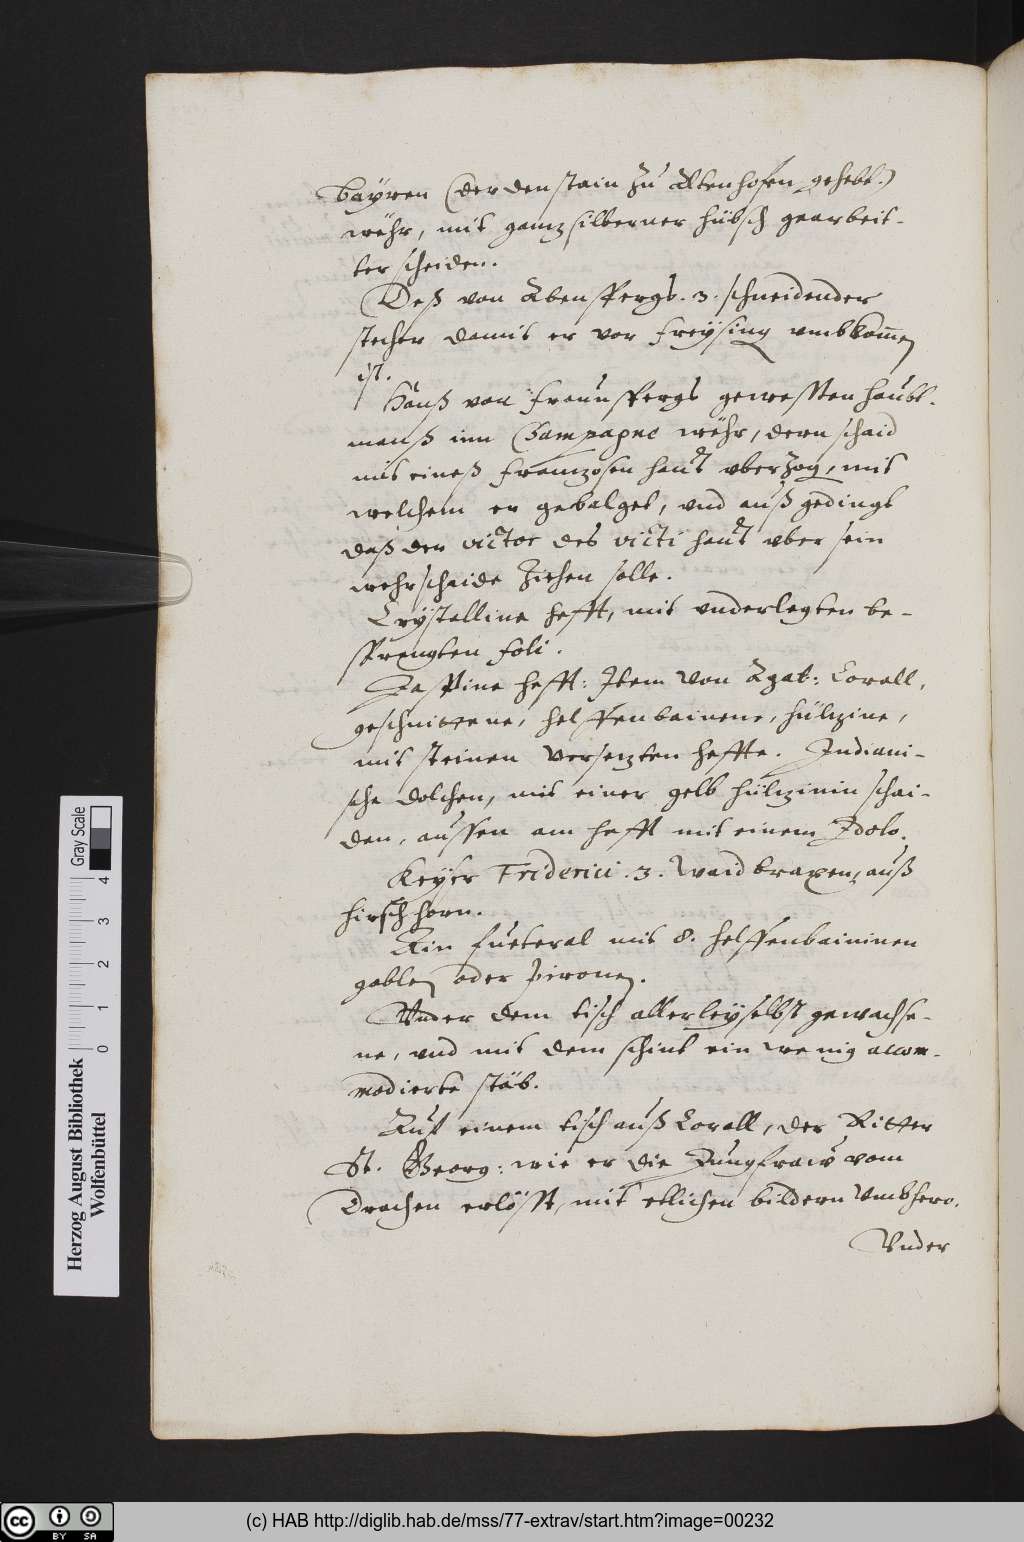 Bayren (der den stain zu Altenhofen gehebt.)
wöhr, mit ganz silberner hübsch gearbeit-
ter scheiden.
Deß von Abenspergs .3. schneidender
stecher damit er vor Freysing vmbkom̃en
ist.
Hanß von Fraunspergs gewesten haubt-
manß inn Campagne wöhr, dern schaid
mit eineß Franzosen haut vberzog, mit
welchem er gebalget, vnd auß gedingt
daß der victor des victi haut vber sein
wehrschaide ziehen solle.
Crystalline hefft, mit vnderlegten be-
sprengten foli.
Jaspine hefft: Item von Agat: Corall,
geschnittene, helffenbainene, hülzine,
mit steinen versezten heffte. Indiani-
sche dolchen, mit einer gelb hülzinin schai-
den, aussen am hefft mit einem Idolo.
Keyser Friderici .3. Waid braxen, auß
hirschhorn.
Ain fueteral mit 8. helffenbaininen
gablen oder pironen.
Vnder dem tisch allerley selbst gewachse-
ne, vnd mit dem schint ein wenig accom-
modierte stäb.
Auf einem tisch auß Corall, der Ritter
St. Georg: wie er die Jungfraw vom
Drachen erlösst, mit etlichen bildern vmbhero.
Vnder
Herzog August Bibliothek
Wolfenbüttel
0 1 2 3 4
Gray Scale
cc BY SA
(c) HAB http://diglib.hab.de/mss/77-extrav/start.htm?image=00232